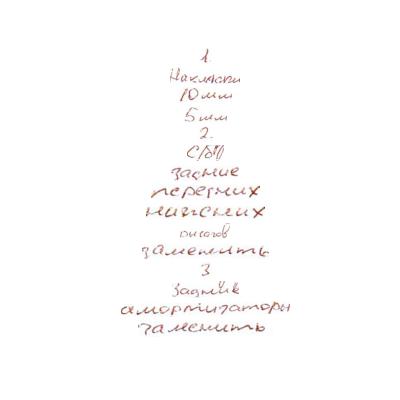 1.
Наклавки
10мм
5мм
2.
С/бл
задние
передних
нижних
рисагов
заменить
3
задние
амортизаторы
заменить